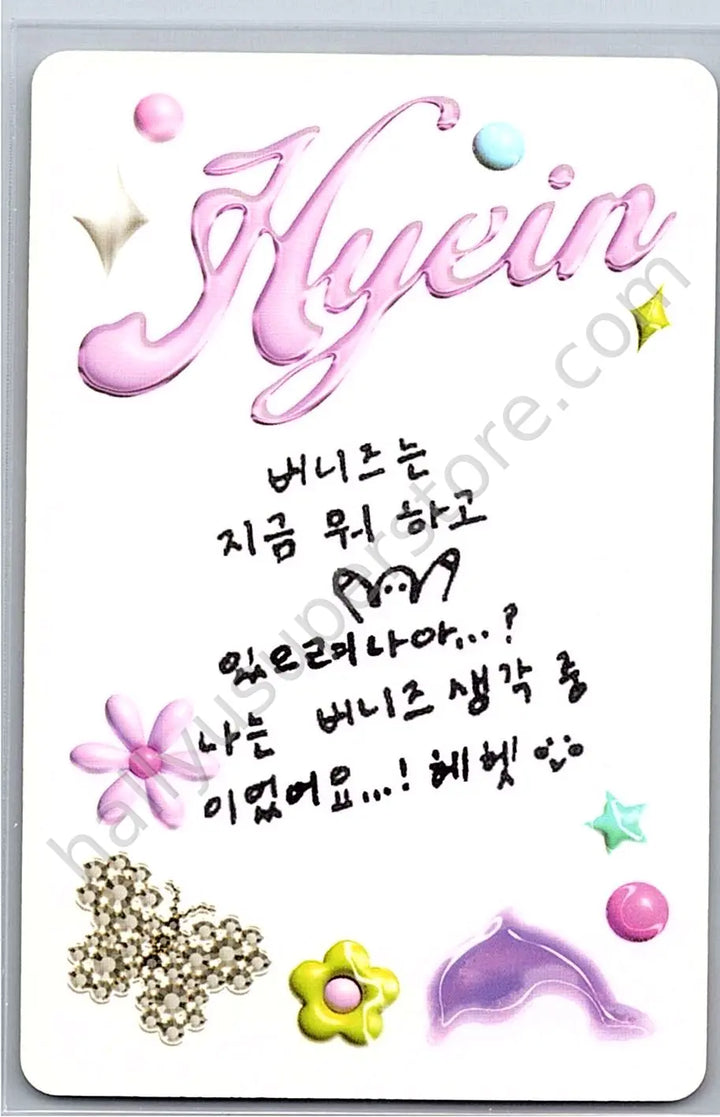 Hyein
버니즈는
지금 뭐 하고
있으려나아...?
나는 버니즈 생각 중
이었어요...! 헤헷
hallyusuperstore.com